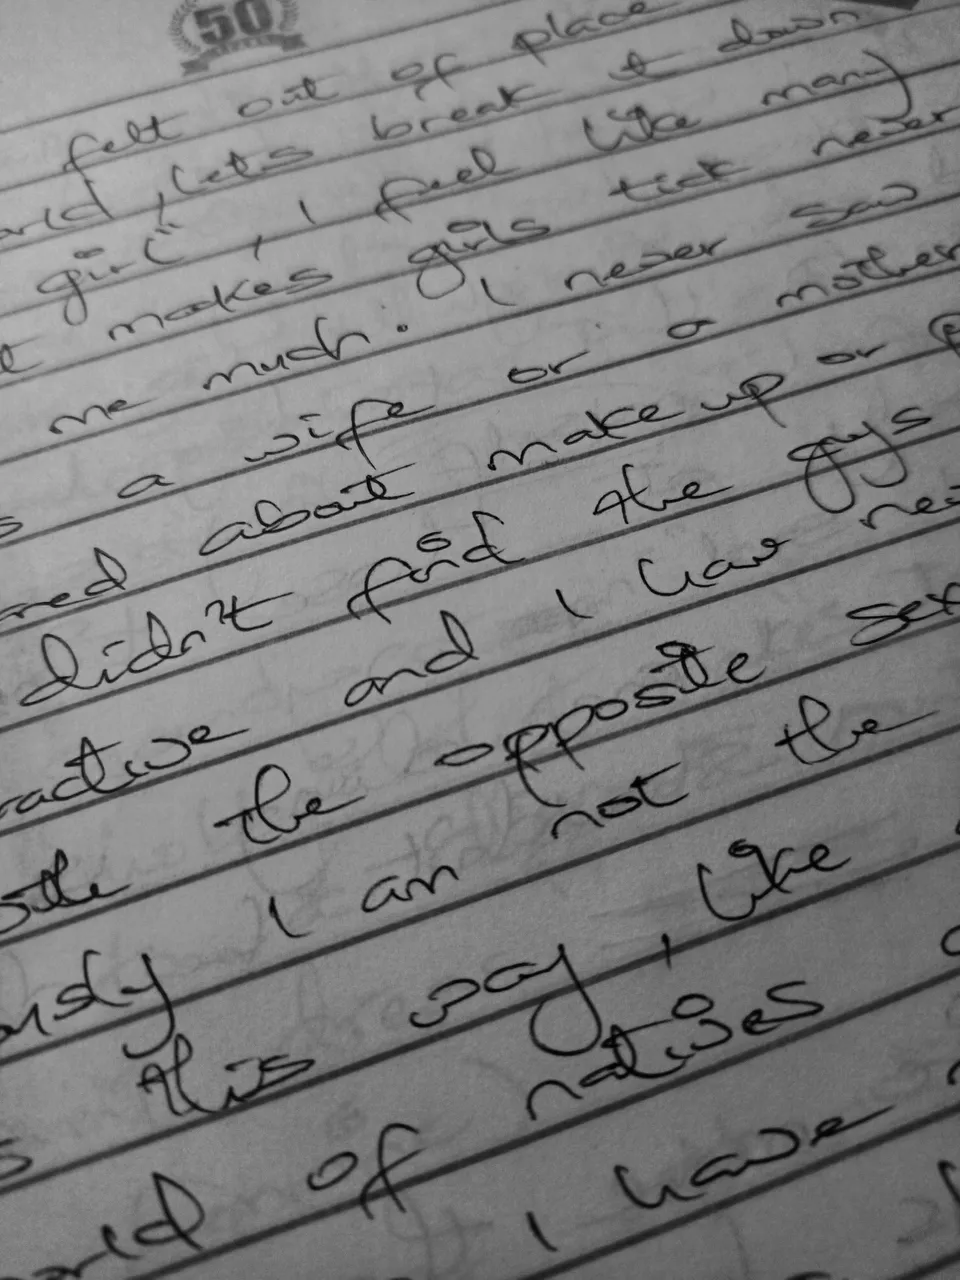 50
felt out of place
, lets break it down
girl", I feel like many
makes girls tick never
me much. I never saw
a wife or a mother
about makeup or
didn't find the guys
and I have
the opposite sex
I am not the
this way, like
of natives
I have